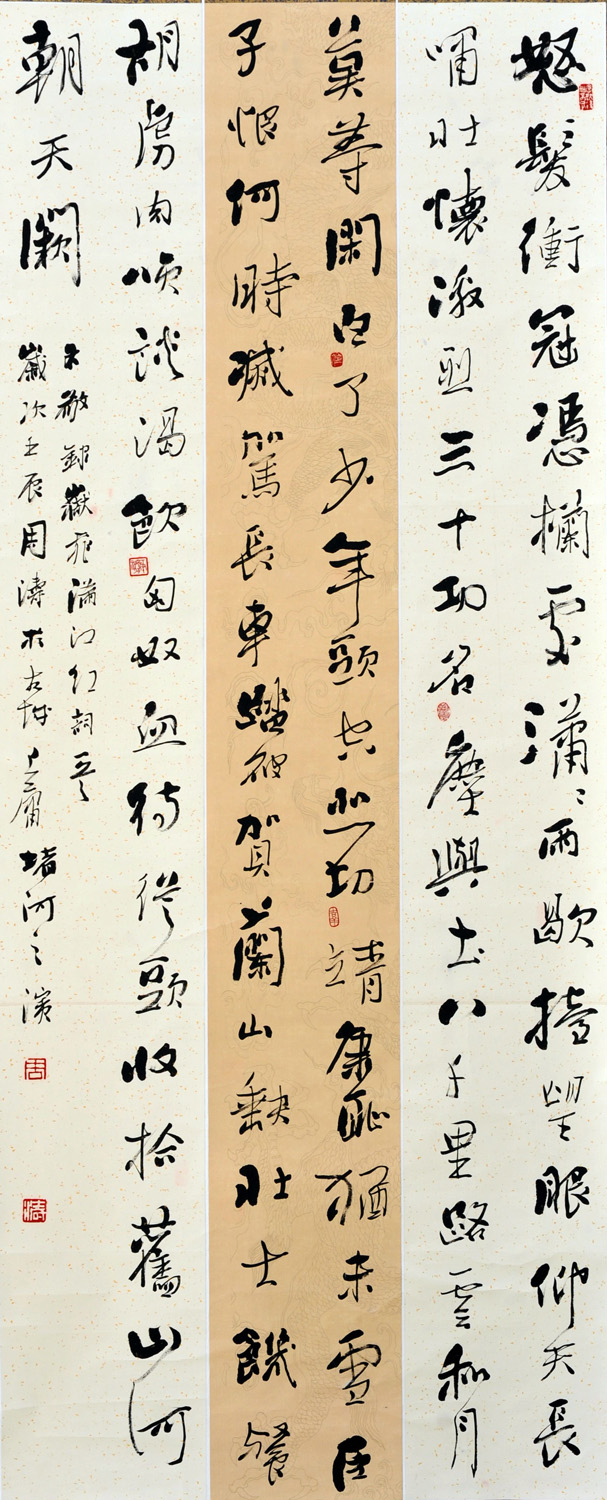 怒髮衝冠憑欄處瀟〻雨歇擡望眼仰天長
嘯壯懷激烈三十功名塵與土八千里路雲和月
莫等閑白了少年頭空悲切靖康恥猶未雪臣
子恨何時滅駕長車踏破賀蘭山缺壯士饑餐
胡虜肉咲談渴飲匈奴血待從頭收拾舊山河
朝天闕
敬錄嶽飛滿江紅詞
歲次壬辰周濤於古城上庸堵河之濱
周
濤